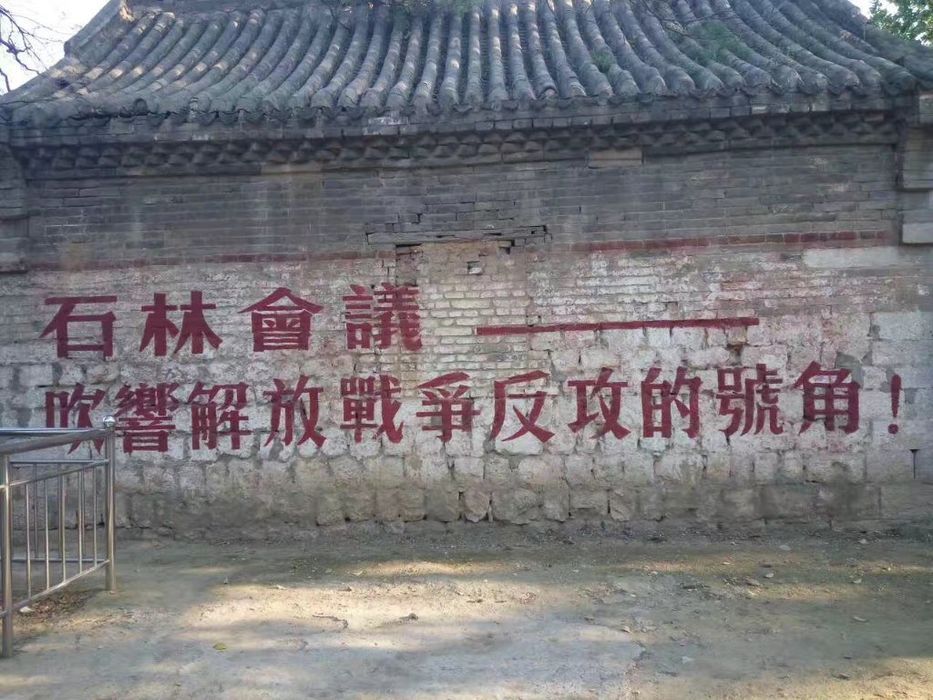 石林會議——
吹響解放戰爭反攻的號角！